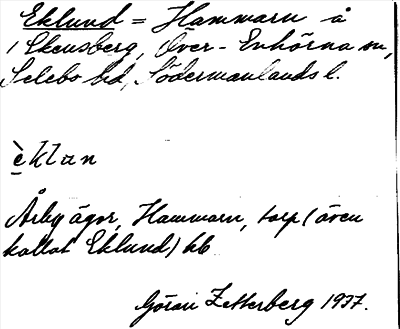 Eklund = Hammarn å
Ekensberg, Över-Enhörna sn,
Selebo hd, Södermanlands l.
èklan
Årby ägor, Hammarn, torp (även
kallat Eklund) hb
Göran Zetterberg 1937.